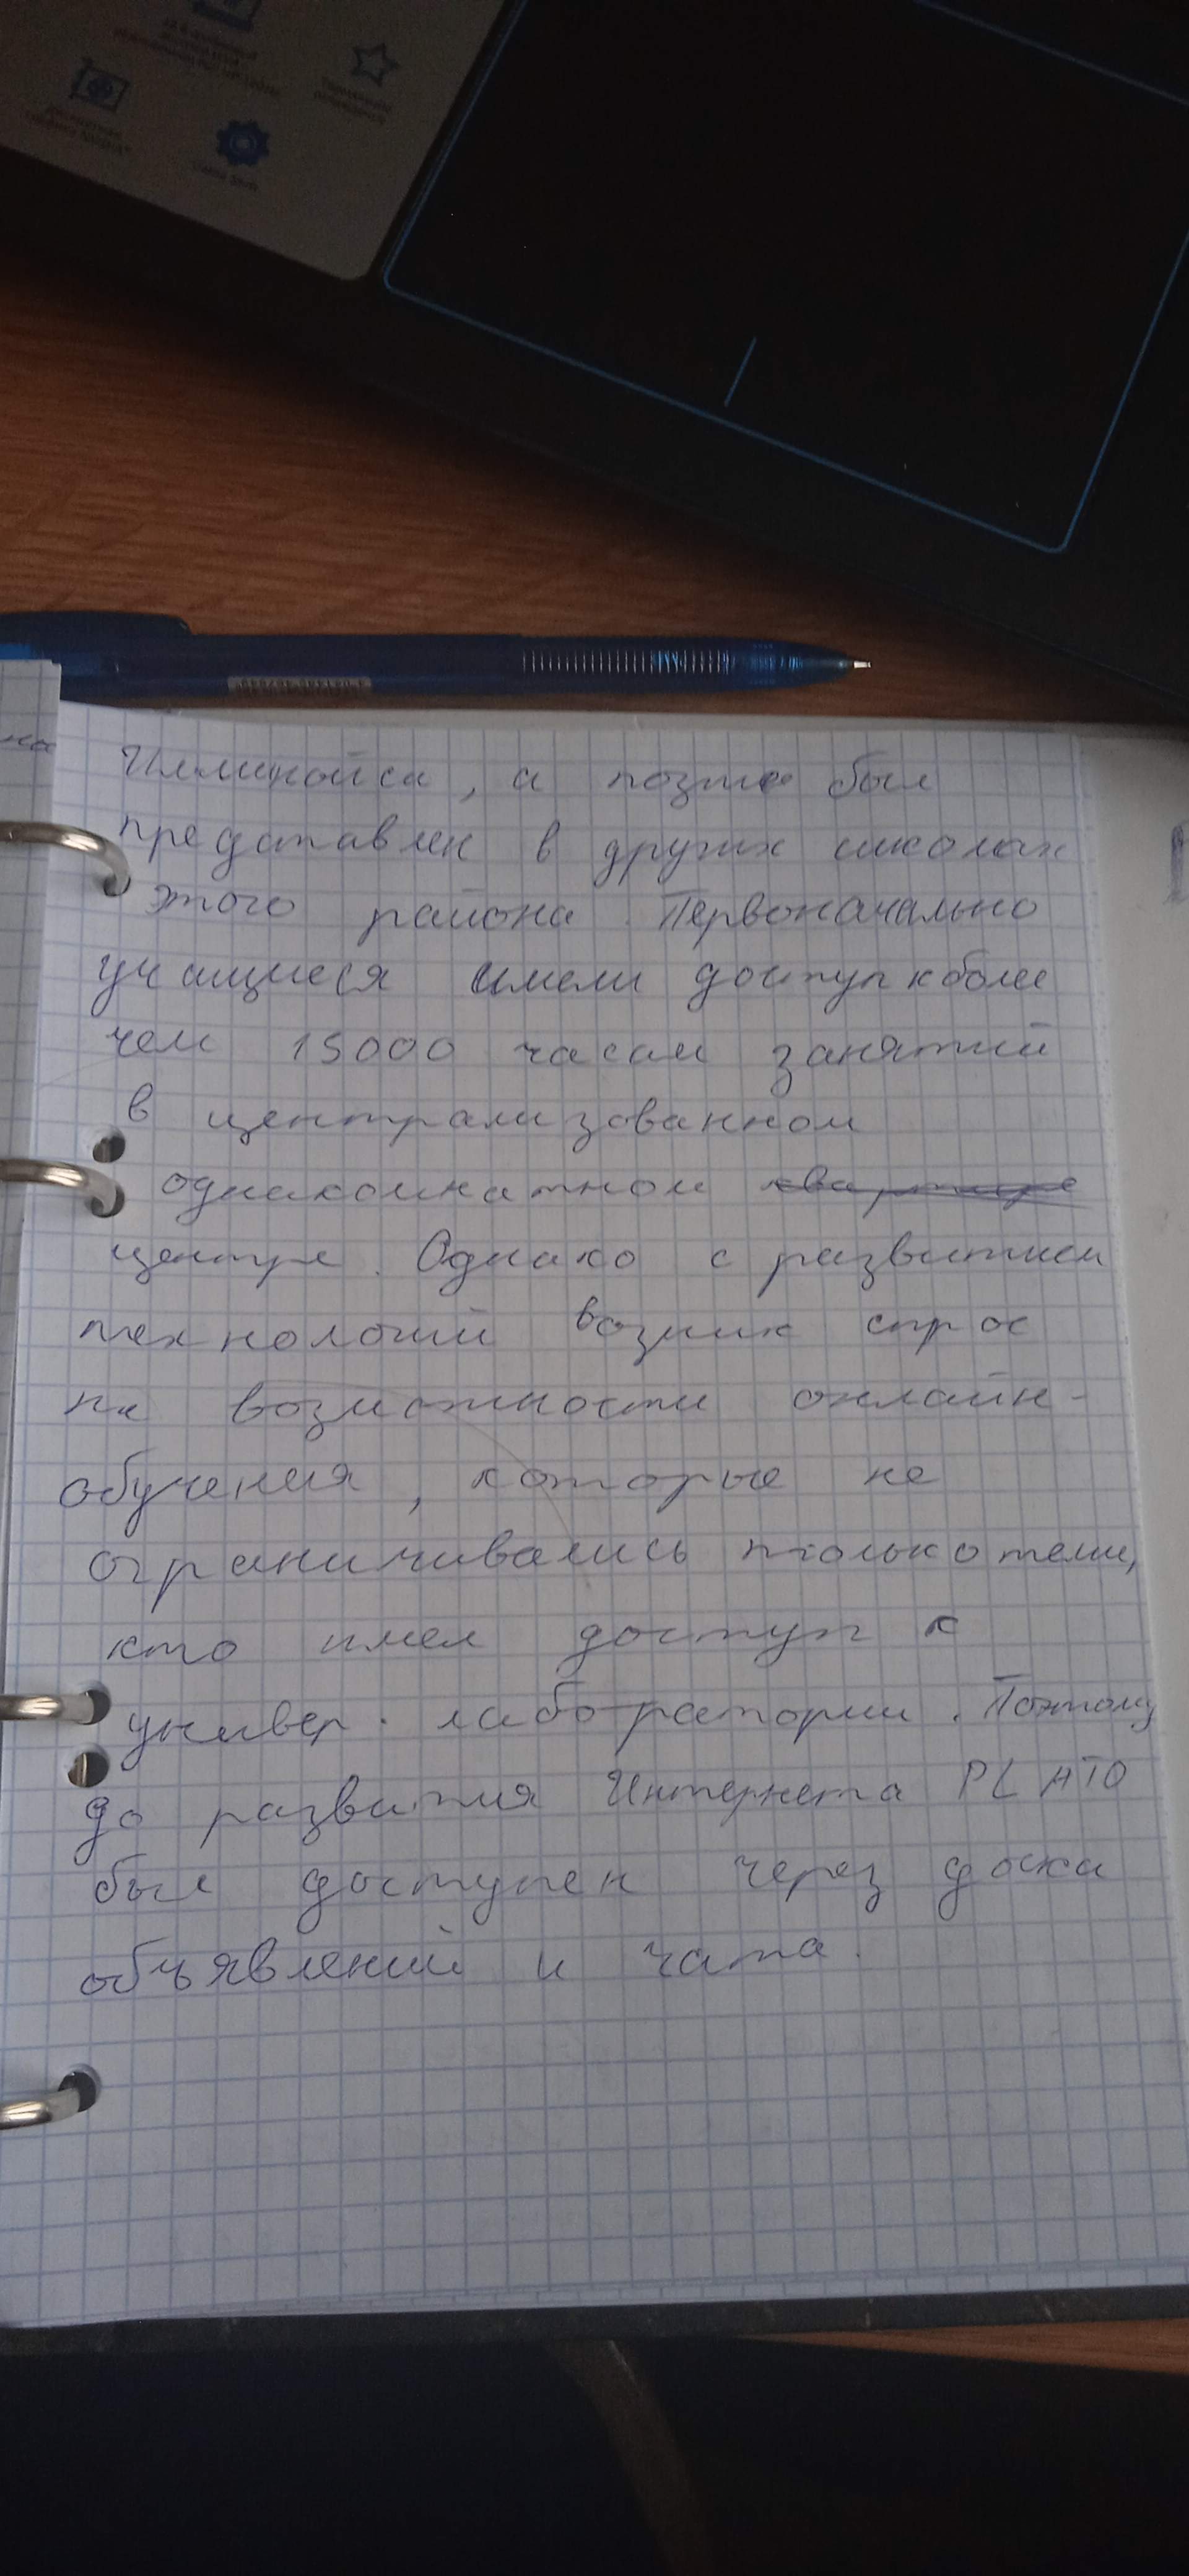 на
Иллинойса, а позже был
представлен в других школах
этого района. Первоначально
учащиеся имели доступ к более
чем 15000 часам занятий
в централизованном
однакомнатном квартире
центре. Однако с развитием
технологий возник спрос
на возможности онлайн-
обучения, которые не
ограничивались только теми,
кто имел доступ к
универ. лаборатории. Поэтому
до развития Интернета PLATO
был доступен через доска
объявлений и чата.